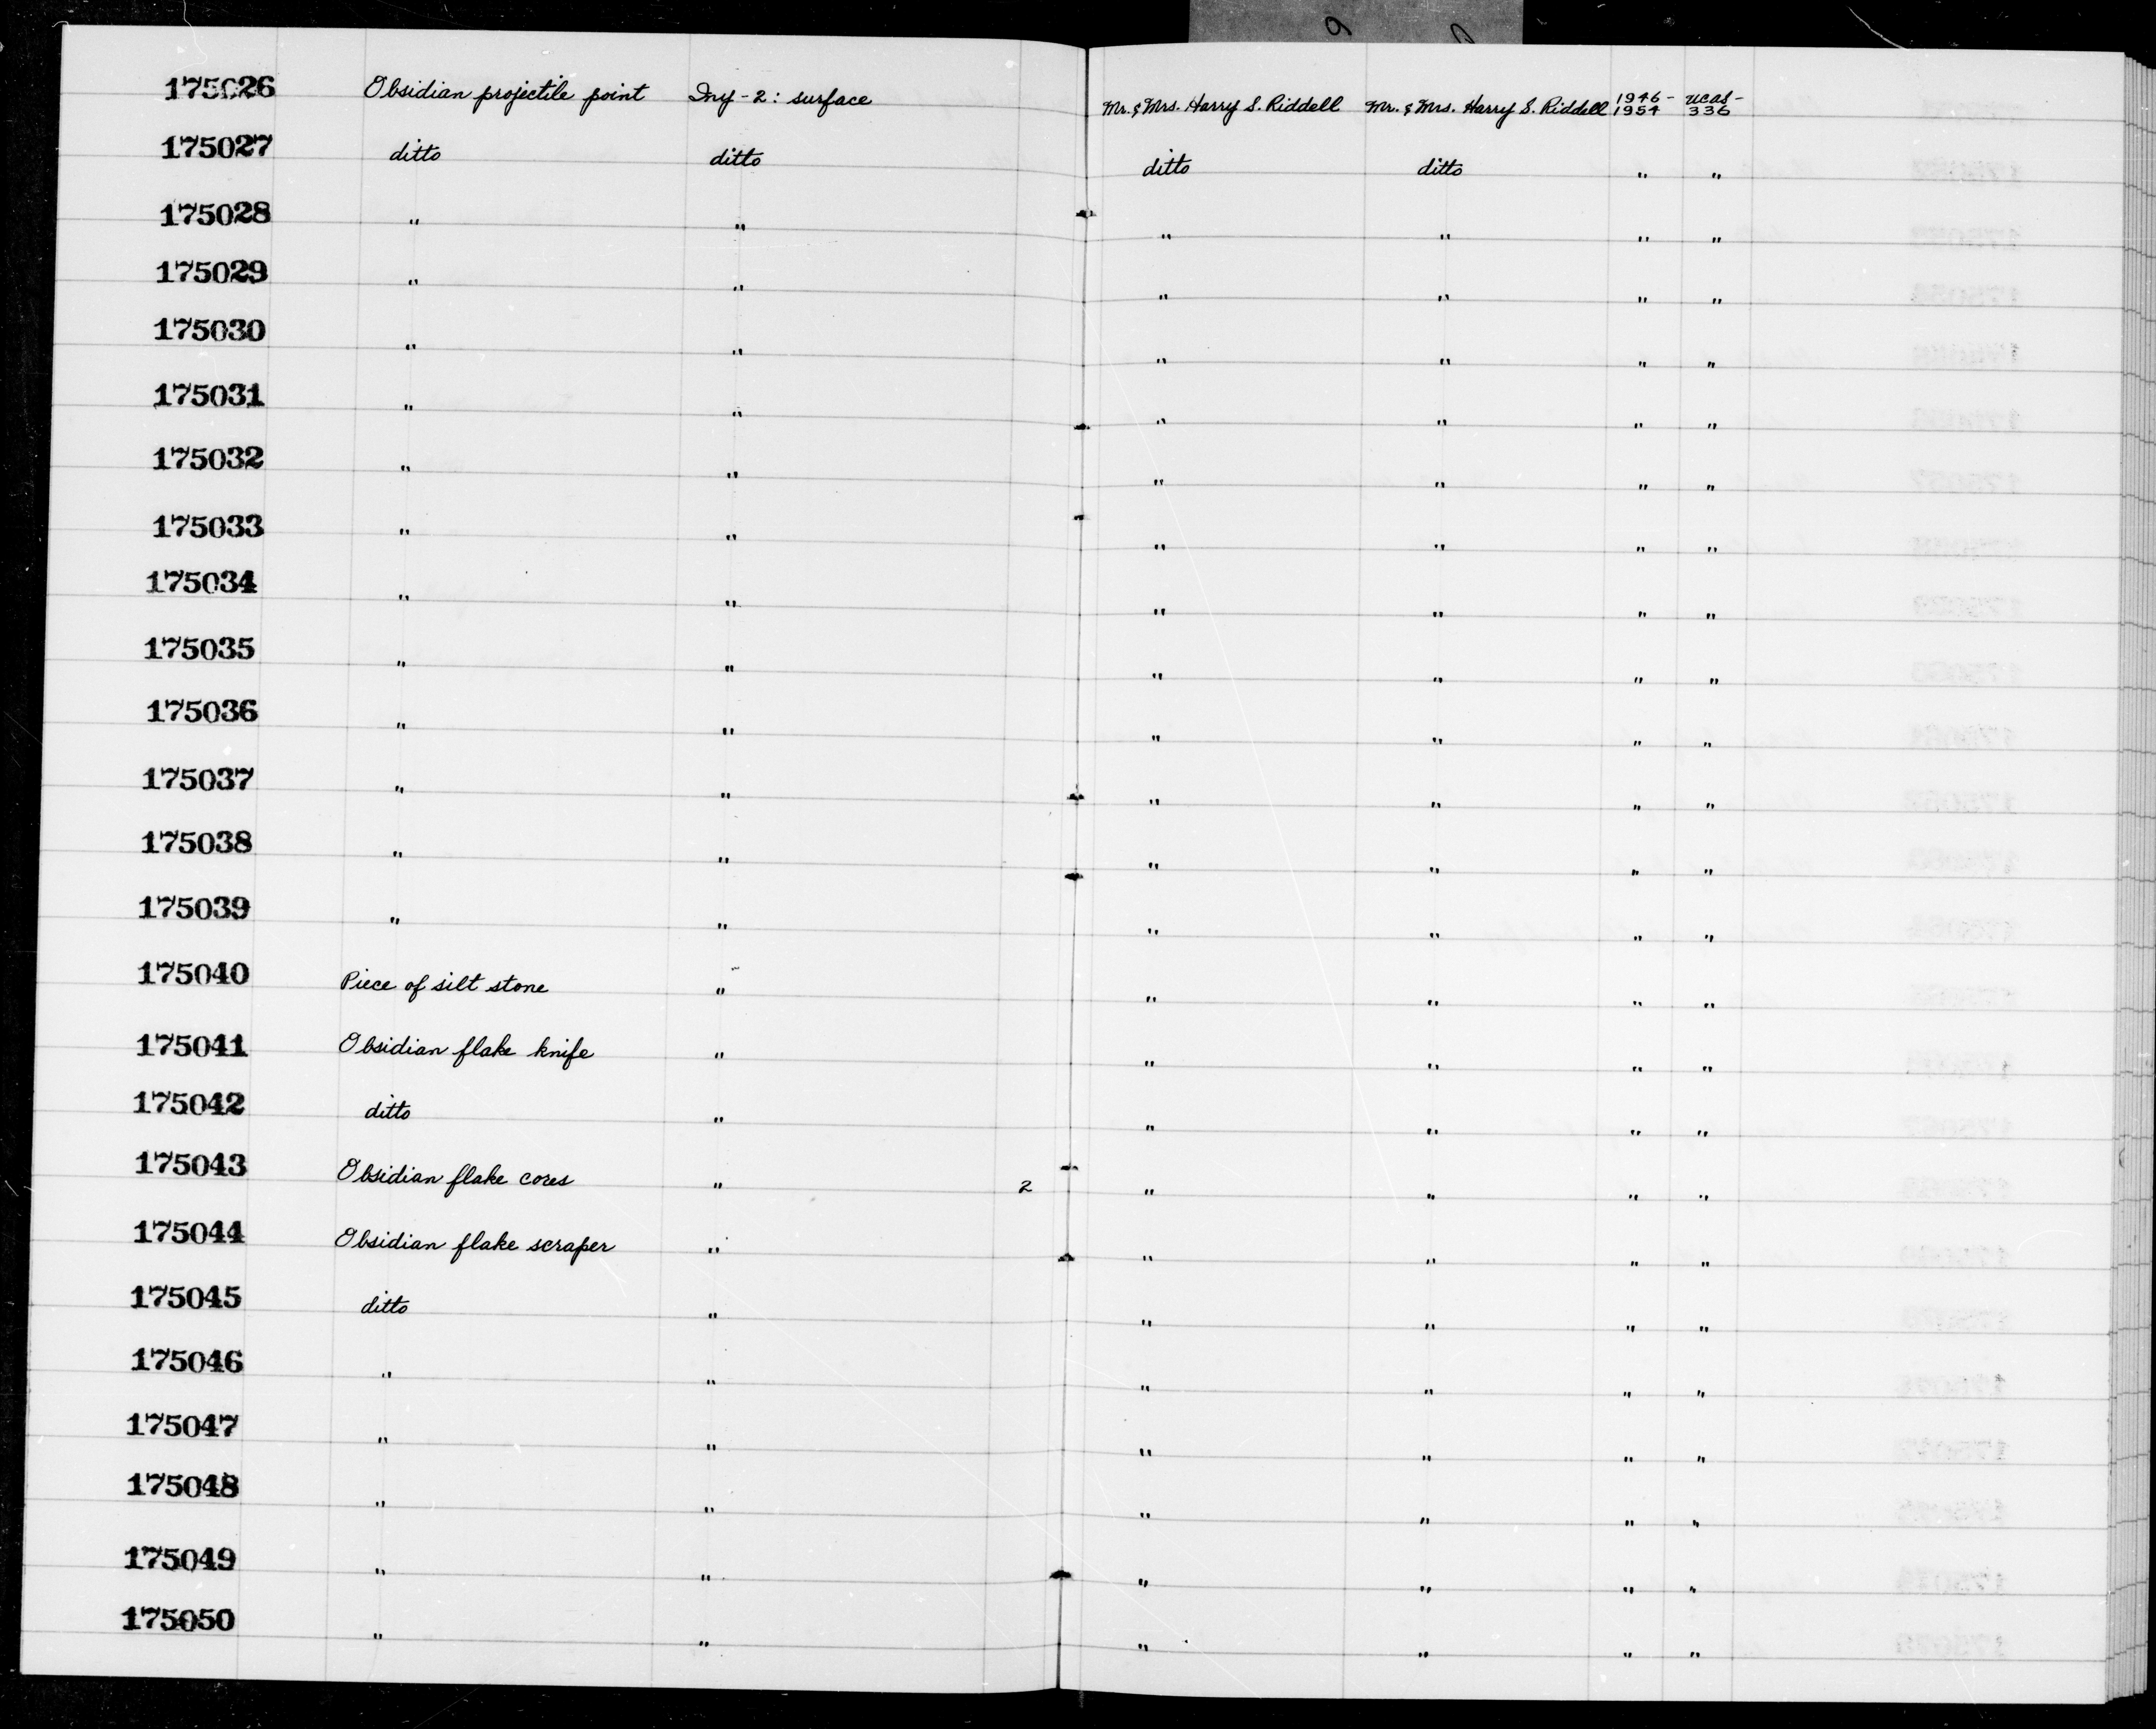 175026 Obsidian projectile point Iny-2: surface Mr. & Mrs. Harry S. Riddell Mr. & Mrs. Harry S. Riddell 1946-1954 UCAS-336
175027 ditto ditto ditto ditto " "
175028 " " " " " "
175029 " " " " " "
175030 " " " " " "
175031 " " " " " "
175032 " " " " " "
175033 " " " " " "
175034 " " " " " "
175035 " " " " " "
175036 " " " " " "
175037 " " " " " "
175038 " " " " " "
175039 " " " " " "
175040 Piece of silt stone " " " " "
175041 Obsidian flake knife " " " " "
175042 ditto " " " " "
175043 Obsidian flake cores " 2 " " " "
175044 Obsidian flake scraper " " " " "
175045 ditto " " " " "
175046 " " " " " "
175047 " " " " " "
175048 " " " " " "
175049 " " " " " "
175050 " " " " " "